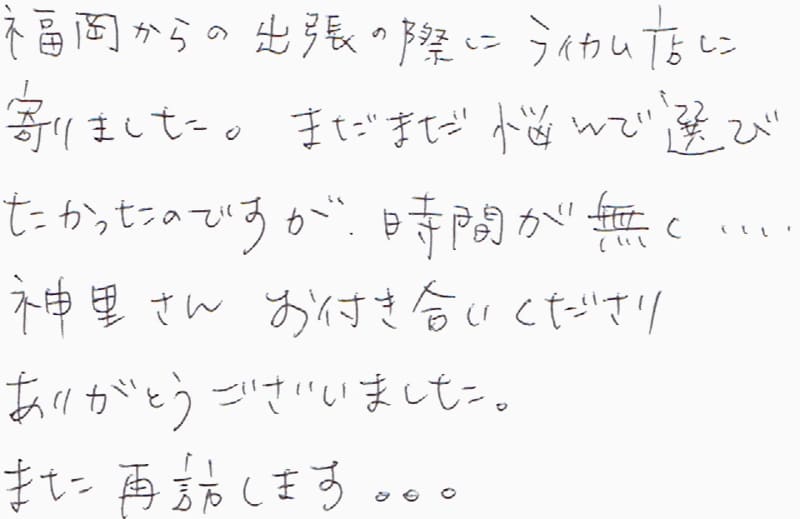 福岡からの出張の際に ライカム店に
寄りました。 まだまだ悩んで選び
たかったのですが、時間が無く‥‥
神里さん お付き合いくださり
ありがとうございました。
また再訪します。。。